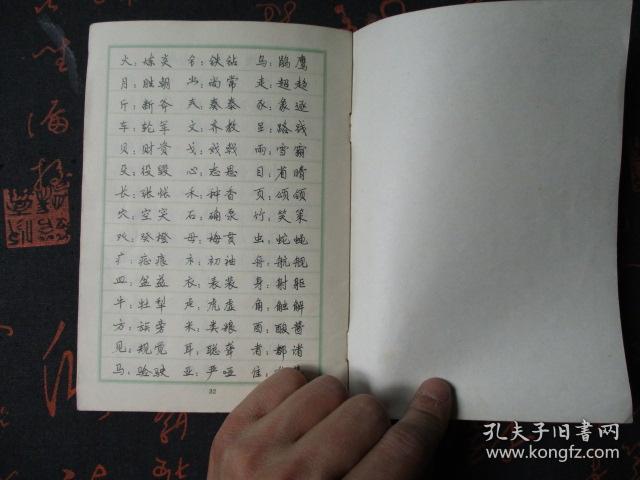 火：炼炎 钅：铁钻 鸟：鹃鹰
月：胜朝 尚常 走：超趁
斤：新斧 秦泰 豕：象逐
车：轮军 文：齐教 路践
贝：财贵 戈：战戟 雨：雪霸
殳：役毁 心：志思 目：省晴
长：张怅 禾：种香 页：颂颌
穴：空突 石：确泵 竹：笑策
癶：癸橙 母：梅贯 虫：蛇蝇
疒：痣痕 衤：初袖 舟：航舰
皿：盆益 衣：表装 身：射躯
牛：牡犁 虎虚 角：触解
方：族旁 米：类粮 酉：酸酱
见：规觉 耳：聪聋 者：都诸
马：验驶 亚：严哑 隹：
32
孔夫子旧书网
www.kongfz.com